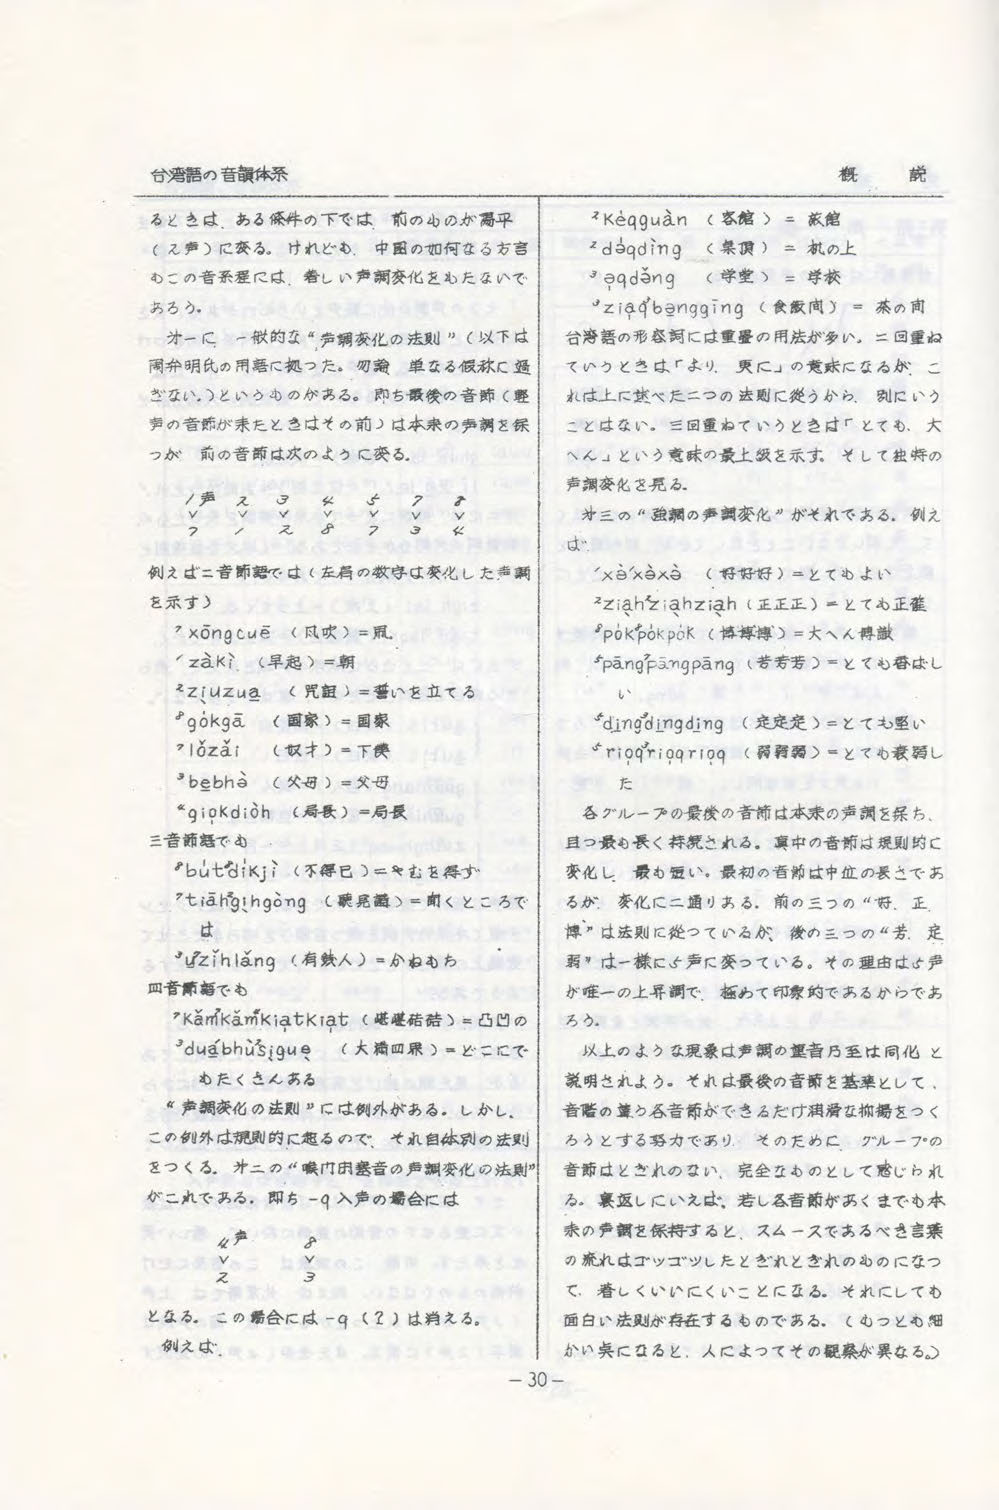 台湾語の音韻体系
概　説
るときは、ある條件の下では、前のものが高平
(2声)に変る。けれども、中国の如何なる方言
もこの音系程には、著しい声調変化をもたないで
あろう。
才一に、一般的な“声調変化の法則”(以下は
周弁明氏の用語に拠った。勿論、単なる假称に過
ぎない。)というものがある。即ち最後の音節(軽
声の音節が来たときはその前)は本来の声調を保
つが、前の音節は次のように変る。
1声 2 3 4 5 7 8
∨ ∨ ∨ ∨ ∨ ∨ ∨
7 1 2 8 7 3 4
例えば二音節語では(左肩の数字は変化した声調
を示す)
⁷xōngcuē (风吹)=凧
¹zàkì (早起)=朝
²zi̱uzua̱ (咒詛)=誓いを立てる
⁸gȯkgā (国家)=国家
⁷lǒzǎi (奴才)=下僕
³be̱bhè (父母)=父母
⁴gio̱kdiòh (局長)=局長
三音節語でも
⁸bu̍t⁸dikjì (不得已)=やむを得ず
⁷tiāh³gi̱hgòng (聴見講)=聞くところで
は
³u̱²zihlǎng (有銭人)=かねもち
四音節語でも
⁷Kǎm⁷KǎmKia̱tKia̱t (嵁嵁硈硈)=凸凹の
³dua̱¹bhùsi̱gue̱ (大満四界)=どこにで
もたくさんある
“声調変化の法則”には例外がある。しかし、
この例外は規則的に起るので、それ自体別の法則
をつくる。才二の“喉门闭塞音の声調変化の法則”
がこれである。即ち -q 入声の場合には
4声 8
∨ ∨
2 3
となる。この場合には -q (ʔ) は消える。
例えば、
²Kėqguàn (客館) = 旅館
²dȯqdìng (桌頂) = 机の上
³o̱qdǒng (学堂) = 学校
³zia̱q³bo̱nggīng (食飯间) = 茶の间
台湾語の形容詞には重畳の用法が多い。二回重ね
ていうときは「より、更に」の意味になるが、こ
れは上に述べた二つの法則に從うから、別にいう
ことはない。三回重ねていうときは「とても、大
へん」という意味の最上級を示す。そして独特の
声調変化を見る。
才三の“強調の声調変化”がそれである。例え
ば、
¹xò¹xòxò (好好好)=とてもよい
²zia̱h²zia̱hzia̱h (正正正)=とても正確
⁸pȯk⁸pȯkpȯk (博博博)=大へん博識
⁵pāng⁷pāngpāng (芳芳芳)=とても香ばし
い
⁵di̱ng³di̱ngdi̱ng (定定定)=とても堅い
⁵rio̱q³rio̱qrio̱q (弱弱弱)=とても衰弱し
た
各グループの最後の音節は本来の声調を保ち、
且つ最も長く持続される。真中の音節は規則的に
変化し、最も短い。最初の音節は中位の長さであ
るが、変化に二通りある。前の三つの“好、正、
博”は法則に從っているが、後の三つの“芳、定
弱”は一様に5声に変っている。その理由は5声
が唯一の上昇調で、極めて印象的であるからであ
ろう。
以上のような現象は声調の重音乃至は同化、と
説明されよう。それは最後の音節を基準として、
音階の違う各音節ができるだけ円滑な抑揚をつく
ろうとする努力であり、そのために、グループの
音節はとぎれのない、完全なものとして感じられ
る。裏返しにいえば、若し各音節があくまでも本
来の声調を保持すると、スムースであるべき言葉
の流れはゴツゴツしたとぎれとぎれのものになつ
て、著しくいいにくいことになる。それにしても
面白い法則が存在するものである。(もっとも細
かい臭になると、人によってその観察が異なる。)
－30－